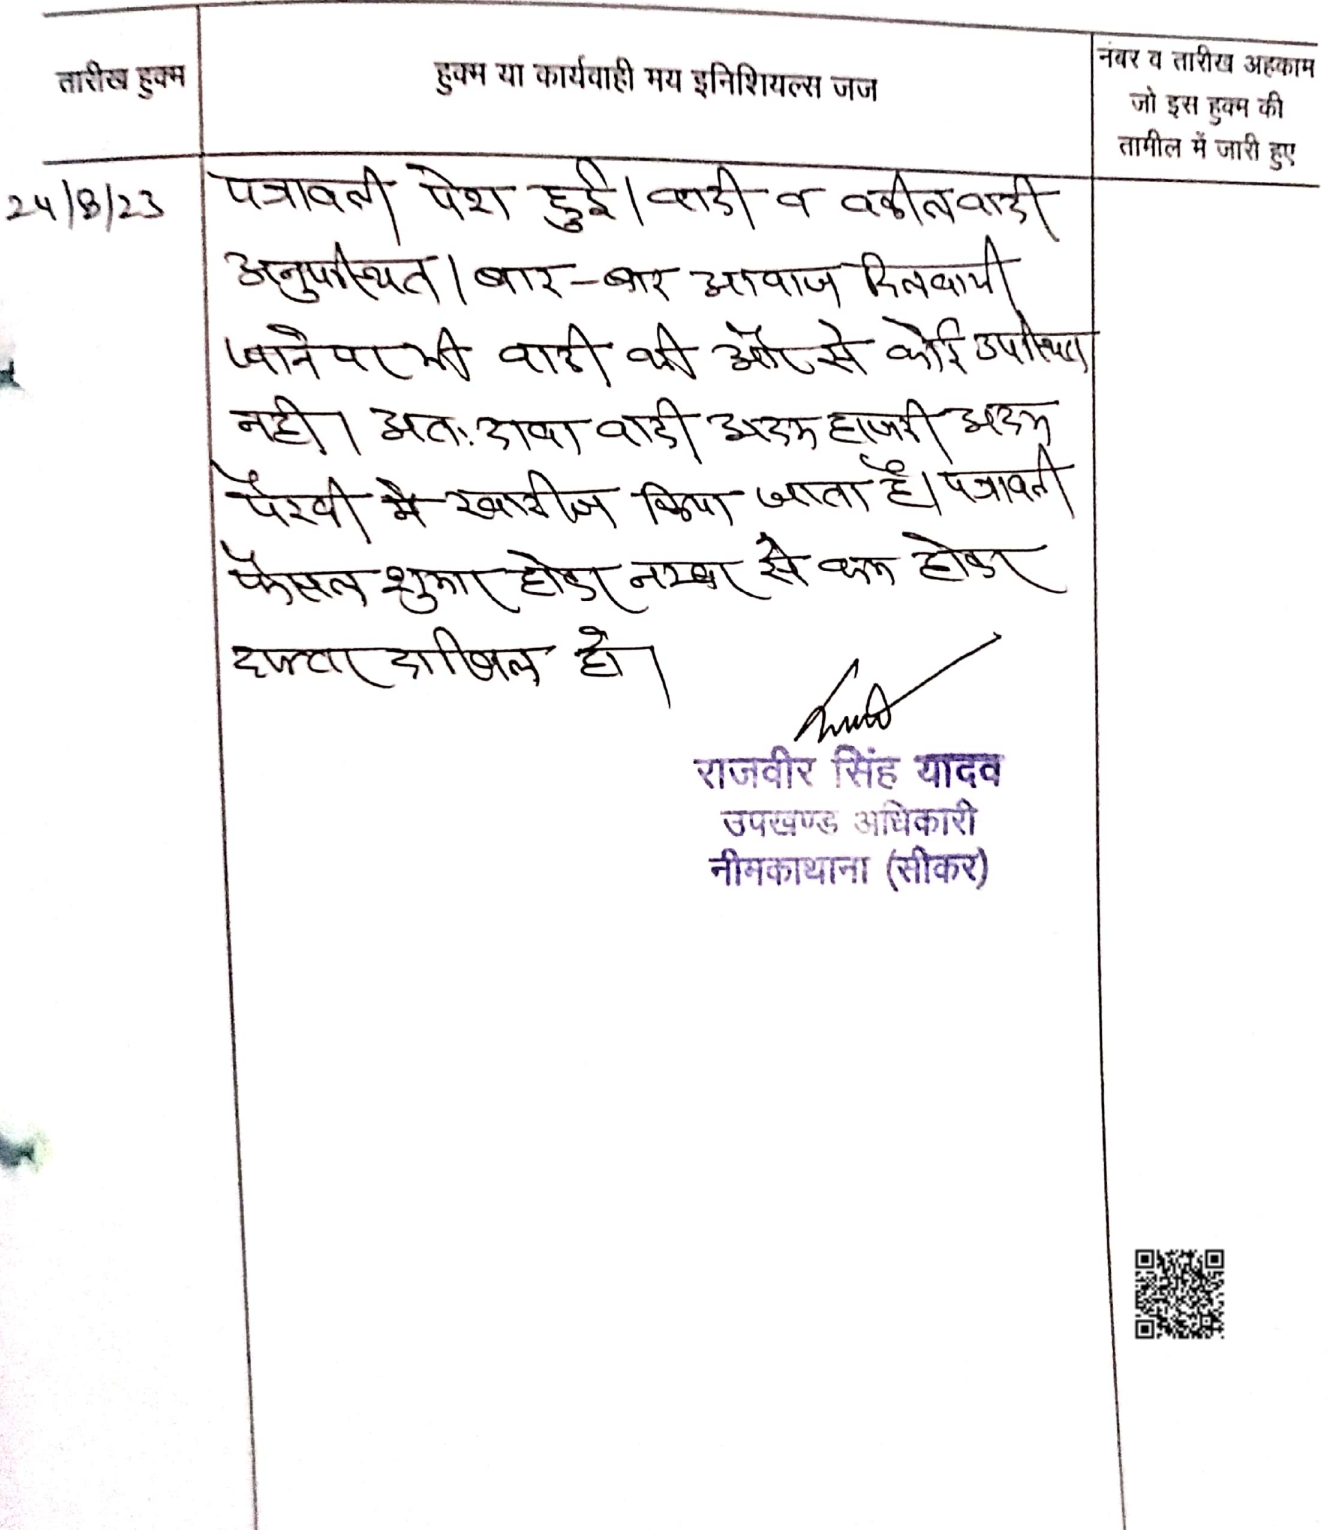 तारीख हुक्म
हुक्म या कार्यवाही मय इनिशियल्स जज
नंबर व तारीख अहकाम
जो इस हुक्म की
तामील में जारी हुए
24/8/23
पत्रावली पेश हुई। वादी व वकील वादी
अनुपस्थित। बार-बार आवाज दिलवायी
जाने पर भी वादी की ओर से कोई उपस्थित
नही। अत: दावा वादी अदम हाजरी अदम
पैरवी मे खारीज किया जाता है। पत्रावली
फैसल शुमार होकर नम्बर से कम होकर
दफ्तर दाखिल हो।
राजवीर सिंह यादव
उपखण्ड अधिकारी
नीमकाथाना (सीकर)